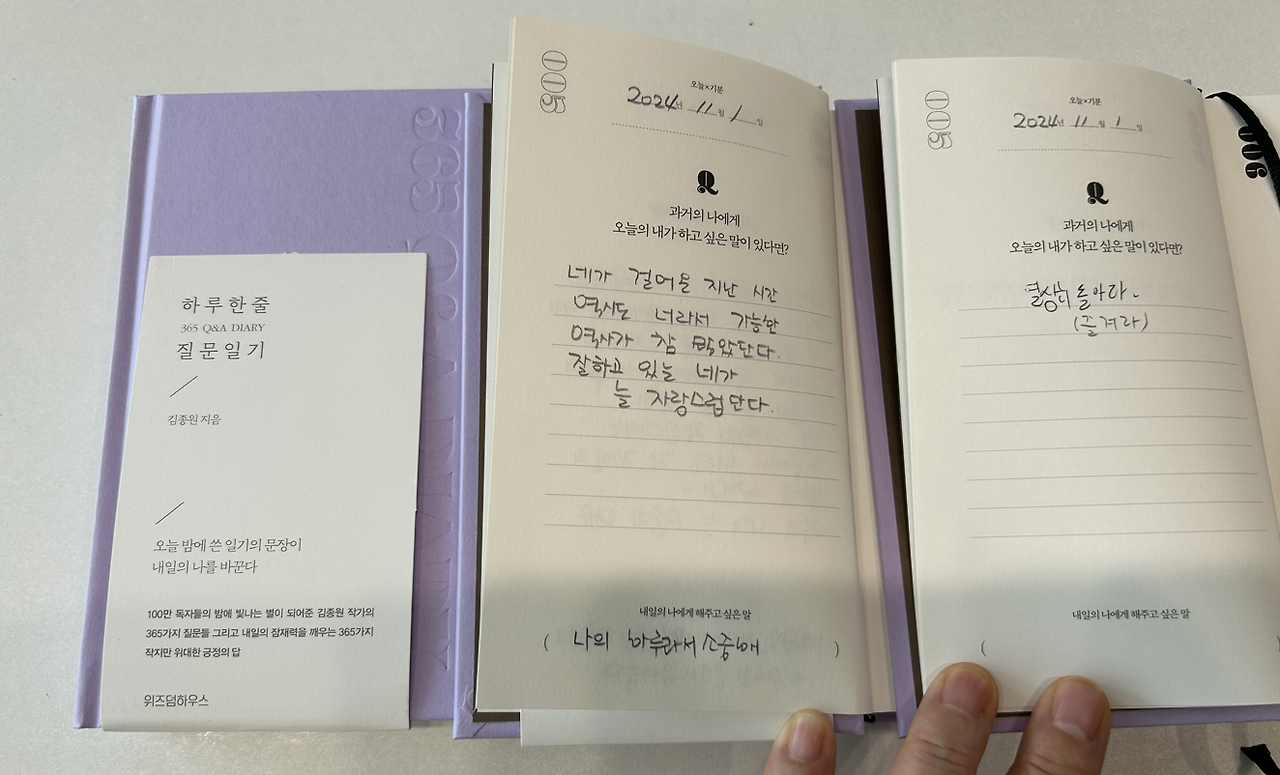 365 Q&A DIARY
하루 한 줄
365 Q&A DIARY
질문 일기
김종원 지음
오늘 밤에 쓴 일기의 문장이
내일의 나를 바꾼다
100만 독자들의 밤에 빛나는 별이 되어준 김종원 작가의
365가지 질문들 그리고 내일의 잠재력을 깨우는 365가지
작지만 위대한 긍정의 답
위즈덤하우스
005
오늘×기분
2024년 11월 1일
Q
과거의 나에게
오늘의 내가 하고 싶은 말이 있다면?
네가 걸어온 지난 시간
역시도 너라서 가능한
역사가 참 많았단다.
잘하고 있는 네가
늘 자랑스럽단다.
내일의 나에게 해주고 싶은 말
( 나의 하루라서 소중해 )
005
오늘×기분
2024년 11월 1일
Q
과거의 나에게
오늘의 내가 하고 싶은 말이 있다면?
열심히 놀아라.
(즐겨라)
내일의 나에게 해주고 싶은 말
(
006